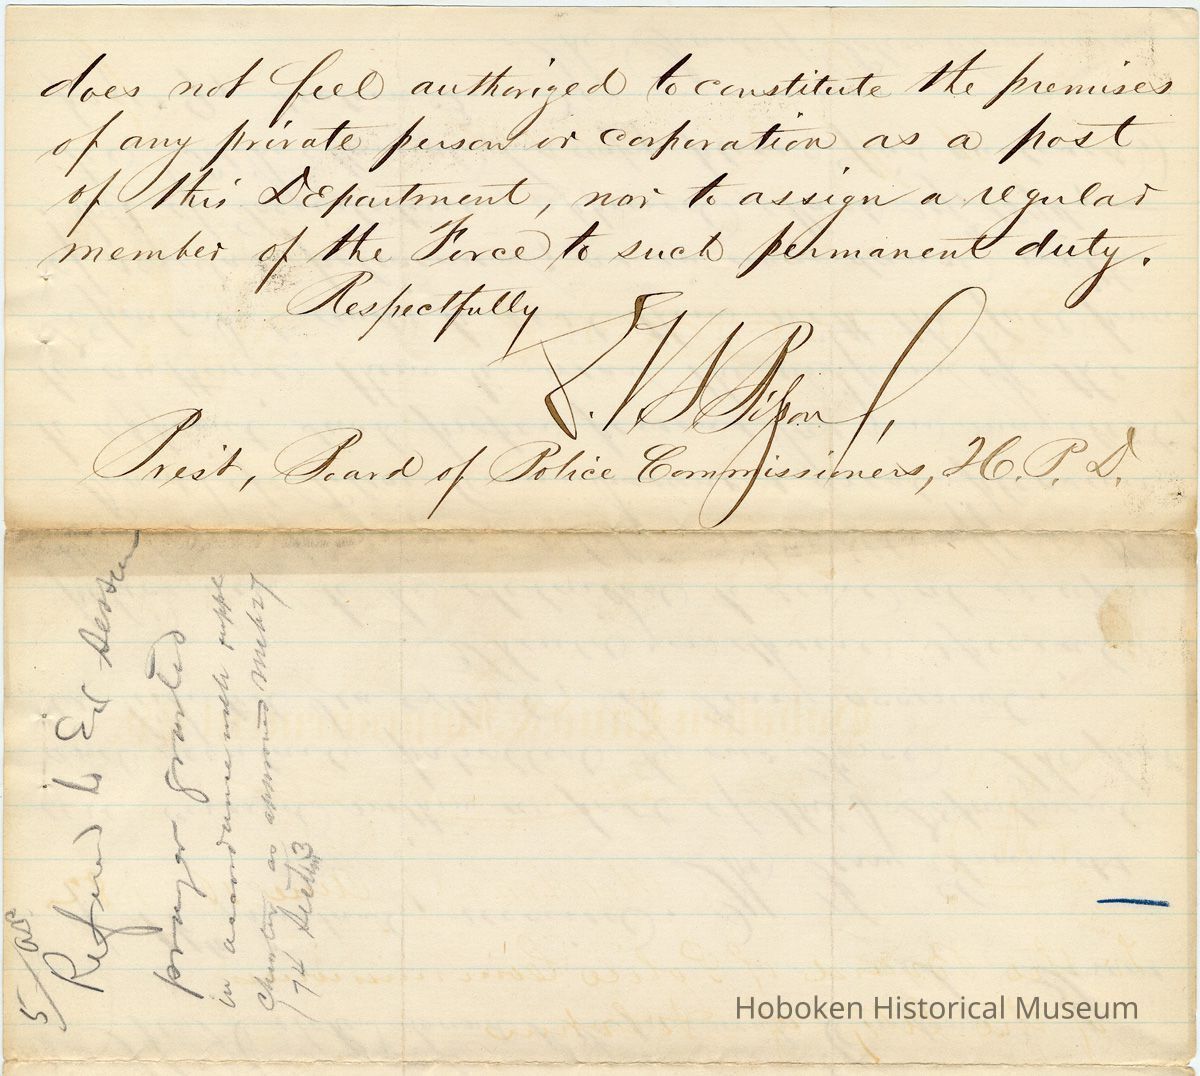 does not feel authorized to constitute the premises
of any private person or corporation as a post
of this Department, nor to assign a regular
member of the Force to such permanent duty.
Respectfully
Prest, Board of Police Commissioners, H. P. D.
prayer granted
in accordance with suppl
Charter as approved Mch 27
74 Sect 3
Hoboken Historical Museum